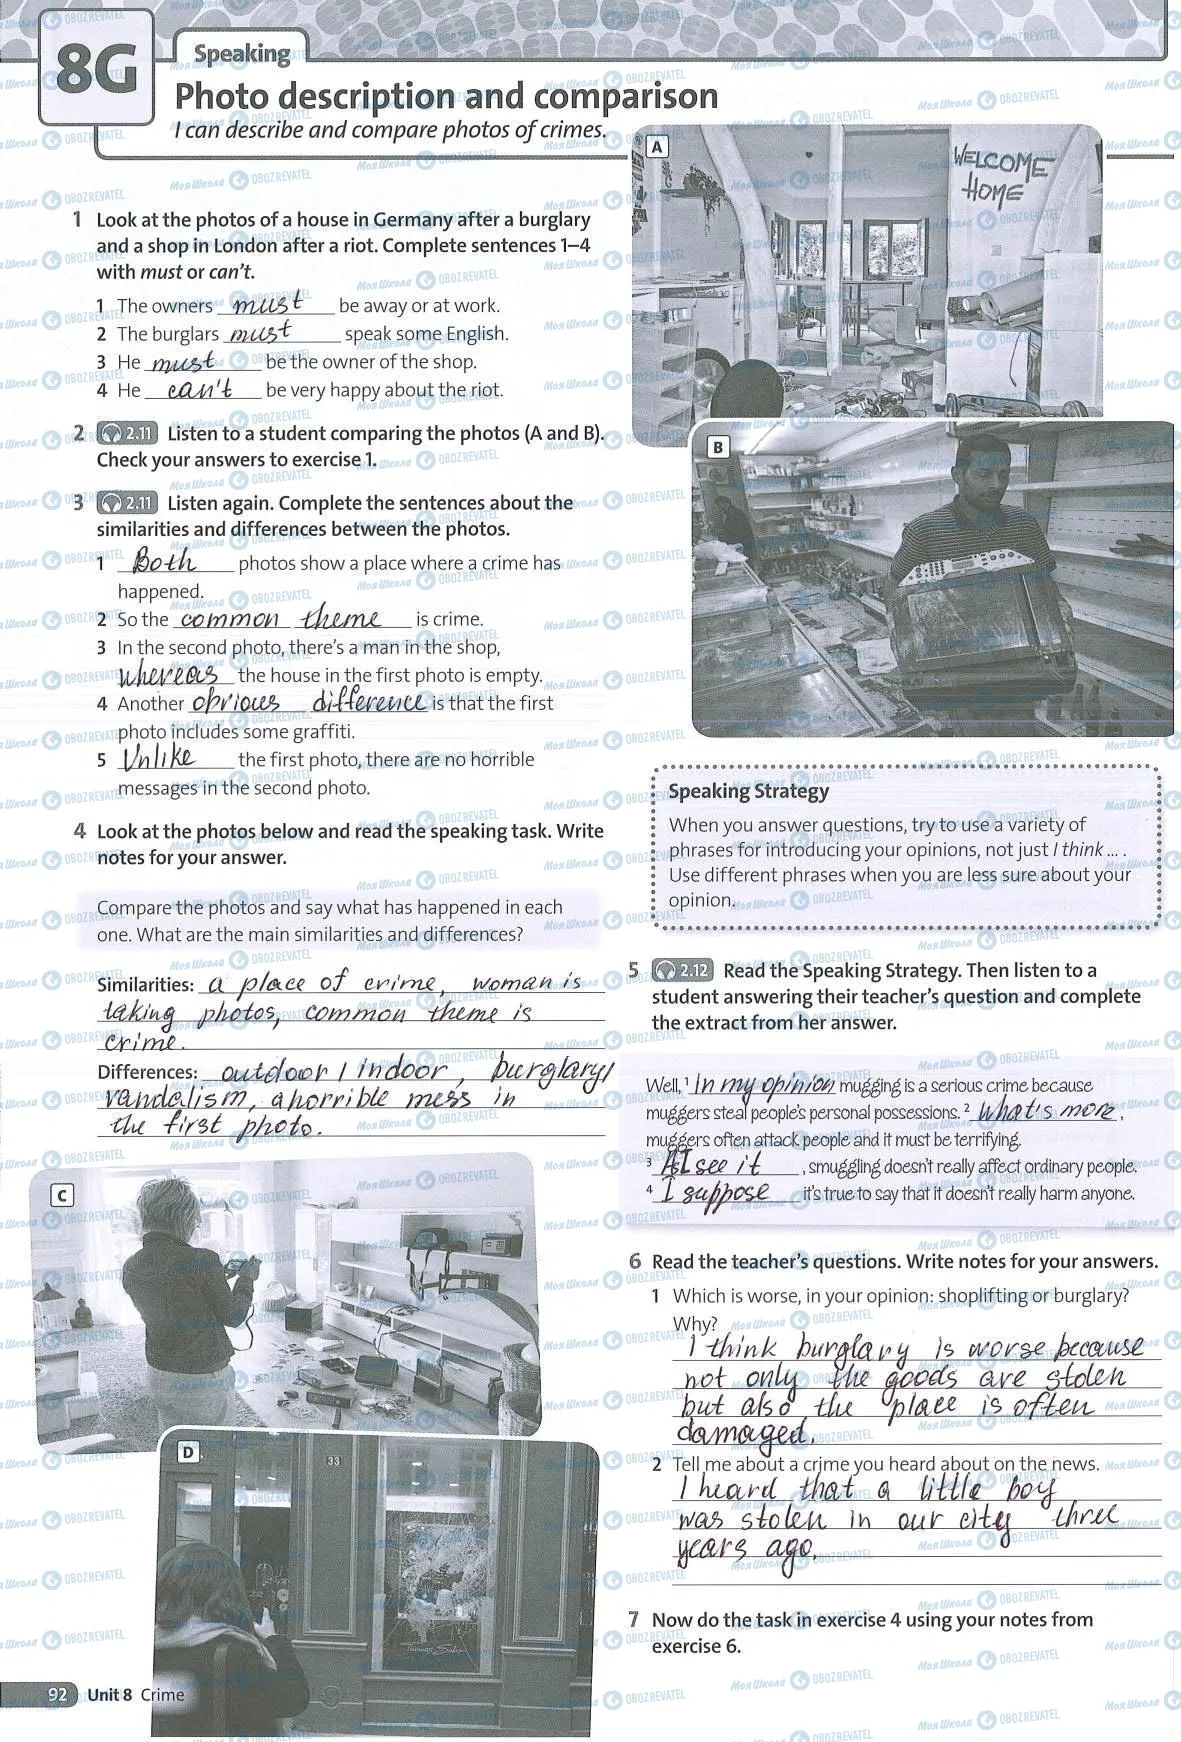 8G
Speaking
Photo description and comparison
I can describe and compare photos of crimes.
1 Look at the photos of a house in Germany after a burglary
and a shop in London after a riot. Complete sentences 1–4
with must or can't.
1 The owners must be away or at work.
2 The burglars must speak some English.
3 He must be the owner of the shop.
4 He can't be very happy about the riot.
2 2.11 Listen to a student comparing the photos (A and B).
Check your answers to exercise 1.
3 2.11 Listen again. Complete the sentences about the
similarities and differences between the photos.
1 Both photos show a place where a crime has
happened.
2 So the common theme is crime.
3 In the second photo, there's a man in the shop,
whereas the house in the first photo is empty.
4 Another obvious difference is that the first
photo includes some graffiti.
5 Unlike the first photo, there are no horrible
messages in the second photo.
4 Look at the photos below and read the speaking task. Write
notes for your answer.
Compare the photos and say what has happened in each
one. What are the main similarities and differences?
Similarities: a place of crime, woman is
taking photos, common theme is
crime.
Differences: outdoor / indoor, burglary/
vandalism, a horrible mess in
the first photo.
C
D
33
Thomas Sabo
92 Unit 8 Crime
A
WELCOME
HOME
B
Speaking Strategy
When you answer questions, try to use a variety of
phrases for introducing your opinions, not just I think ... .
Use different phrases when you are less sure about your
opinion.
5 2.12 Read the Speaking Strategy. Then listen to a
student answering their teacher's question and complete
the extract from her answer.
Well, 1 in my opinion mugging is a serious crime because
muggers steal people's personal possessions. 2 what's more,
muggers often attack people and it must be terrifying.
3 As I see it, smuggling doesn't really affect ordinary people.
4 I suppose it's true to say that it doesn't really harm anyone.
6 Read the teacher's questions. Write notes for your answers.
1 Which is worse, in your opinion: shoplifting or burglary?
Why?
I think burglary is worse because
not only the goods are stolen
but also the place is often
damaged.
2 Tell me about a crime you heard about on the news.
I heard that a little boy
was stolen in our city three
years ago.
7 Now do the task in exercise 4 using your notes from
exercise 6.
Моя Школа OBOZREVATEL